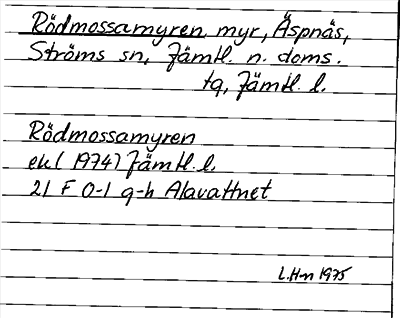 Rödmossamyren, myr, Äspnäs,
Ströms sn, Jämtl. n. doms.
tg, Jämtl. l.
Rödmossamyren
ek (1974) Jämtl. l.
21 F 0-1 g-h Alavattnet
L.H-n 1975